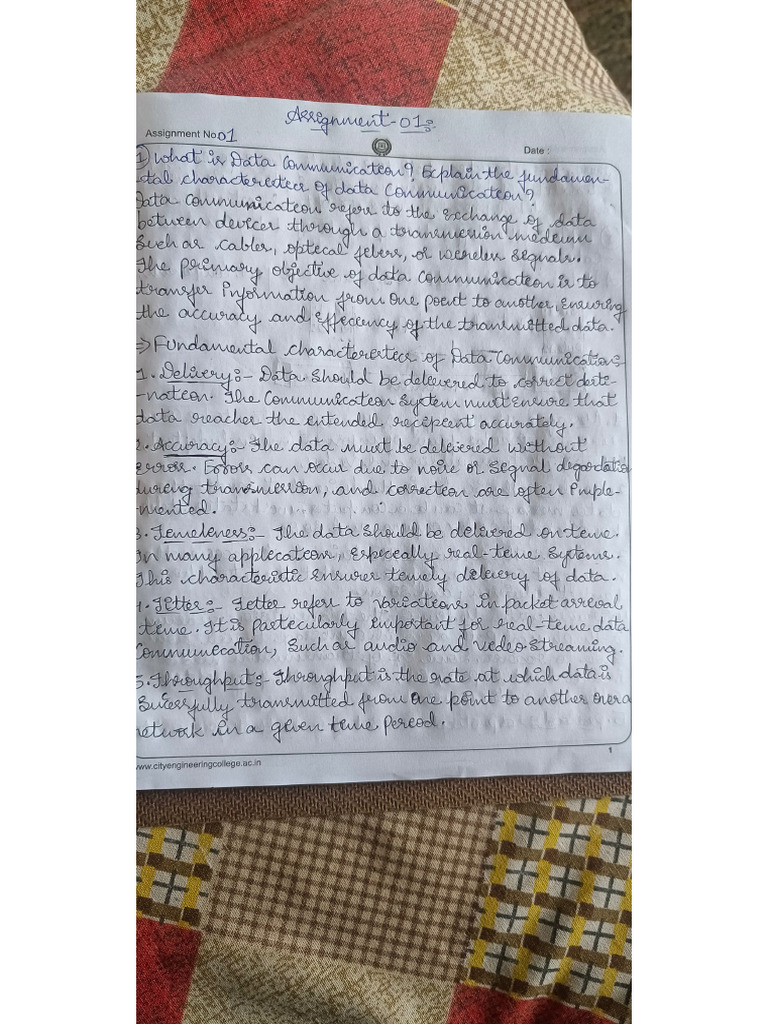 Assignment-01:
Assignment No 01
Date :
1) What is Data Communication? Explain the fundamen-
-tal characteristics of data Communication?
Data communication refers to the exchange of data
between devices through a transmission medium
such as cables, optical fibers, or wireless signals.
The primary objective of data communication is to
transfer information from one point to another, ensuring
the accuracy and efficiency of the transmitted data.
=> Fundamental characteristics of Data Communication:-
1. Delivery:- Data should be delivered to correct desti-
-nation. The Communication System must ensure that
data reaches the intended recipient accurately.
2. Accuracy:- The data must be delivered without
errors. Errors can occur due to noise or signal degordation
during transmission, and correction are often imple-
-mented.
3. Timeliness:- The data should be delivered on time.
In many application, especially real-time systems.
This characteristic ensures timely delivery of data.
4. Jitter:- Jitter refers to variations in packet arrival
time. It is particularly important for real-time data
communication, such as audio and video streaming.
5. Throughput:- Throughput is the rate at which data is
sucessfully transmitted from one point to another over a
network in a given time period.
1
www.cityengineeringcollege.ac.in